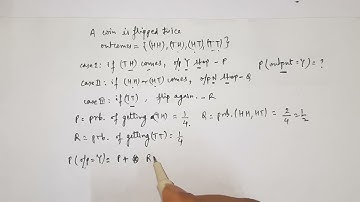 A coin is flipped twice
outcomes = {(HH), (TH), (HT), (TT)}
case I: if (TH) comes, o/p Y stop - P P(output = Y) = ?
case II: if (HH) or (HT) comes, o/p N stop - Q
case III: if (TT), flip again. - R
P = prob. of getting (TH) = 1/4. Q = prob. (HH, HT) = 2/4 = 1/2
R = prob. of getting (TT) = 1/4
P(o/p = Y) = P + R